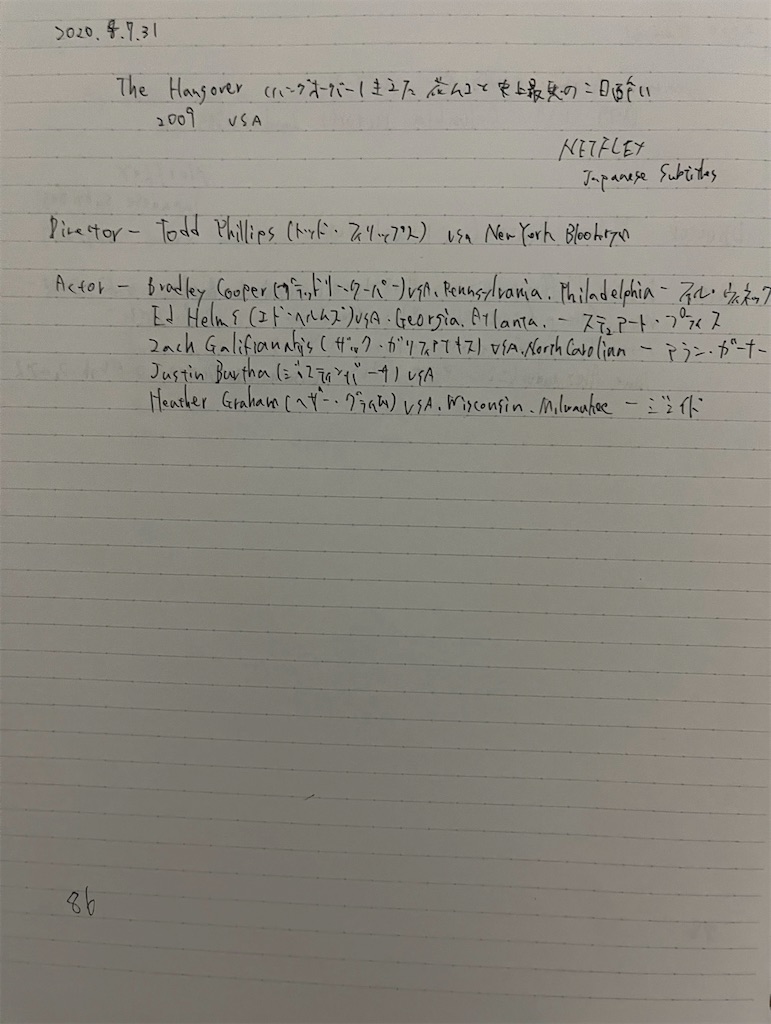 2020. 7.31
The Hangover (ハングオーバー! 消えた花ムコと史上最悪の二日酔い
2009 USA
NETFLEX
Japanese Subtitles
Director - Todd Phillips (トッド・フィリップス) USA New York
Actor - Bradley Cooper (ブラッドリー・クーパー) USA. Pennsylvania. Philadelphia - フィル・ウェネック
Ed Helms (エド・ヘルムズ) USA. Georgia. Atlanta. - ステュアート・プライス
Zach Galifianakis (ザック・ガリフィアナキス) USA. North Carolian - アラン・ガーナー
Justin Bartha (ジャスティン・バーサ) USA
Heather Graham (ヘザー・グラハム) USA. Wisconsin. Milwaukee - ジェイド
86